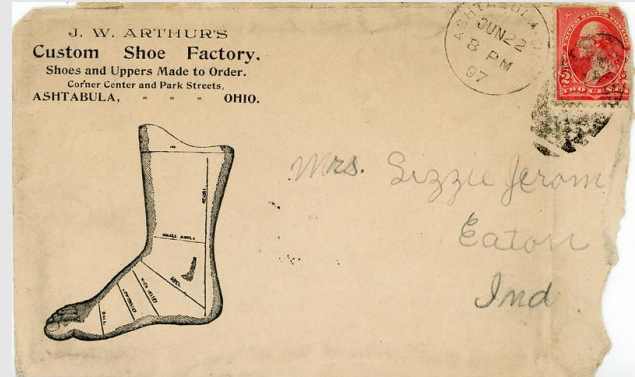 J. W. ARTHUR'S
Custom Shoe Factory.
Shoes and Uppers Made to Order.
Corner Center and Park Streets,
ASHTABULA, " " " OHIO.
ASHTABULA, O
JUN 22
8 PM
97
2
TWO CENTS
Mrs. Lizzie Jerom
Eaton
Ind
SMALL ANKLE
HEEL
BALL